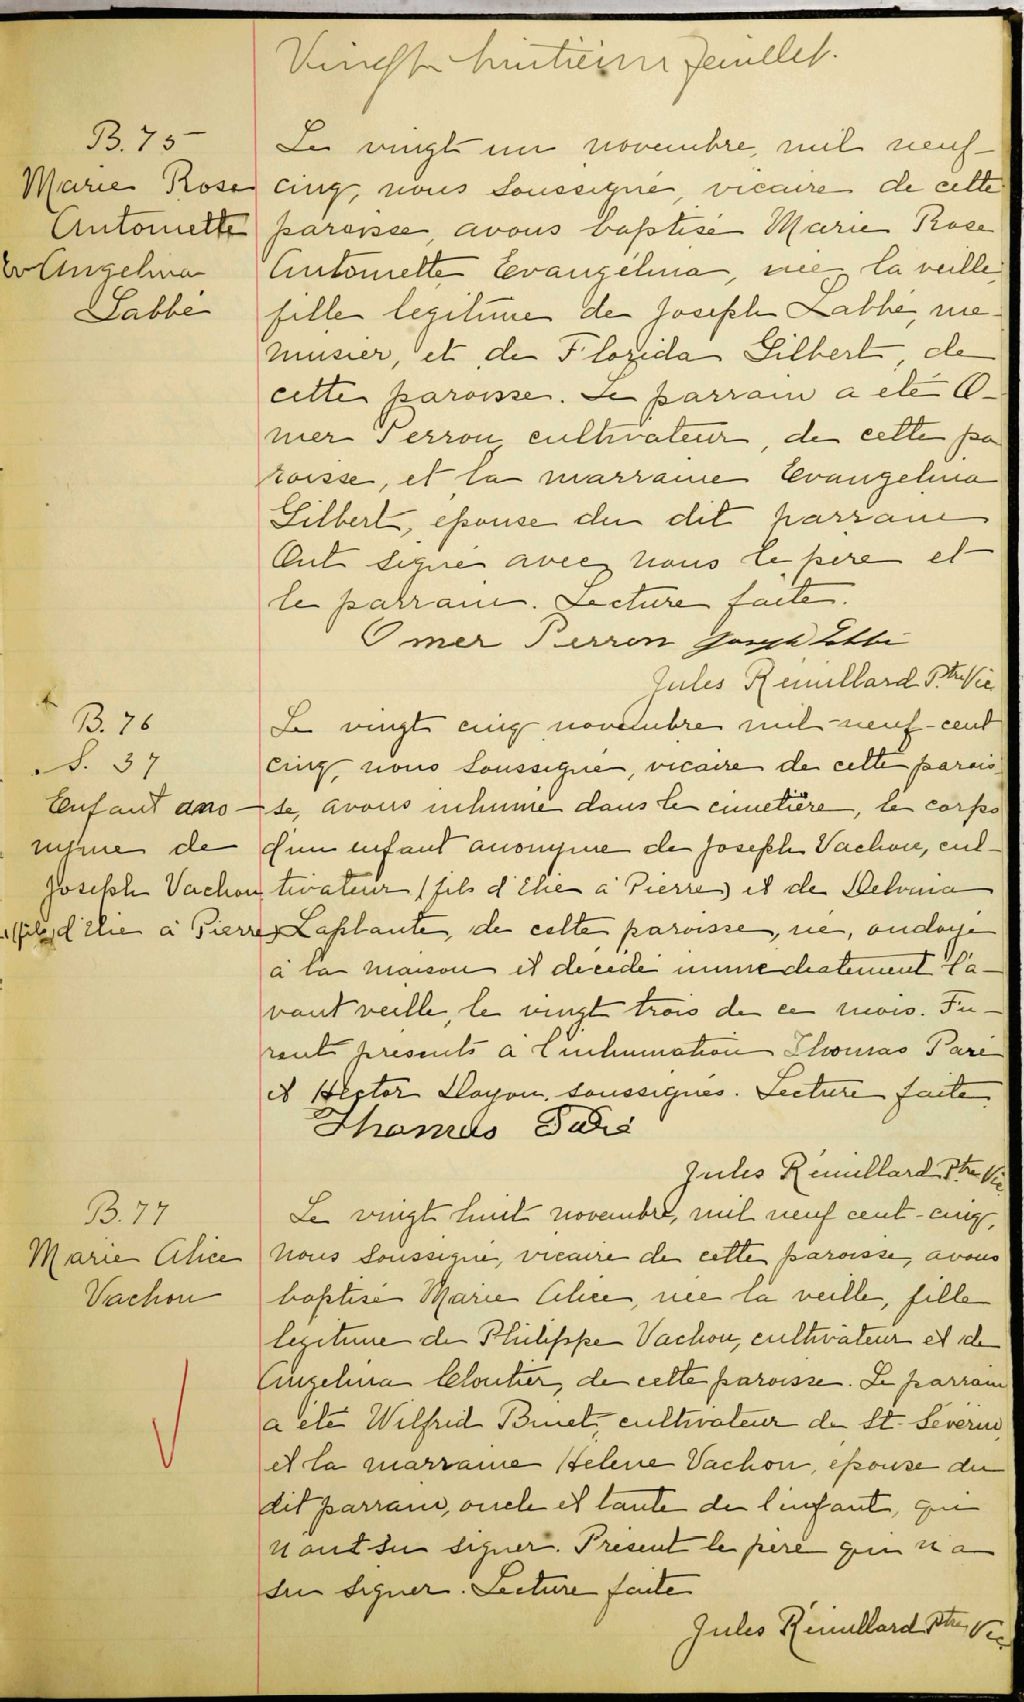 Vingt huitième feuillet.
B. 75
Marie Rose
Antoinette
Evangelina
Labbé
Le vingt un novembre, mil neuf-
cinq, nous soussigné, vicaire de cette
paroisse, avons baptisé Marie Rose
Antoinette Evangélina, née la veille,
fille légitime de Joseph Labbé, me-
nuisier, et de Florida Gilbert, de
cette paroisse. Le parrain a été O-
mer Perron, cultivateur, de cette pa
roisse, et la marraine Evangelina
Gilbert, épouse du dit parrain
Ont signé avec nous le père et
le parrain. Lecture faite.
Omer Perron Joseph Labbé
Jules Rémillard Ptre Vic
B. 76
S. 37
Enfant ano-
nyme de
Joseph Vachon
(fils d'Elie à Pierre)
Le vingt cinq novembre mil-neuf-cent
cinq, nous soussigné, vicaire de cette parois-
se, avons inhumé dans le cimetière, le corps
d'un enfant anonyme de Joseph Vachon, cul-
tivateur (fils d'Elie à Pierre) et de Delvina
Laplante, de cette paroisse, né, ondoyé
à la maison et décédé immédiatement l'a-
vant veille, le vingt trois de ce mois. Fu-
rent présents à l'inhumation Thomas Paré
et Hector Doyon, soussignés. Lecture faite.
Thomas Paré
Jules Rémillard Ptre Vic.
B. 77
Marie Alice
Vachon
Le vingt huit novembre, mil neuf cent-cinq,
nous soussigné, vicaire de cette paroisse, avons
baptisé Marie Alice, née la veille, fille
legitime de Philippe Vachon, cultivateur et de
Angelina Cloutier, de cette paroisse. Le parrain
a été Wilfrid Binet, cultivateur de St-Sévérin,
et la marraine Hélène Vachon, épouse du
dit parrain, oncle et tante de l'enfant, qui
n'ont su signer. Présent le père qui n'a
su signer. Lecture faite
Jules Rémillard Ptre Vic.